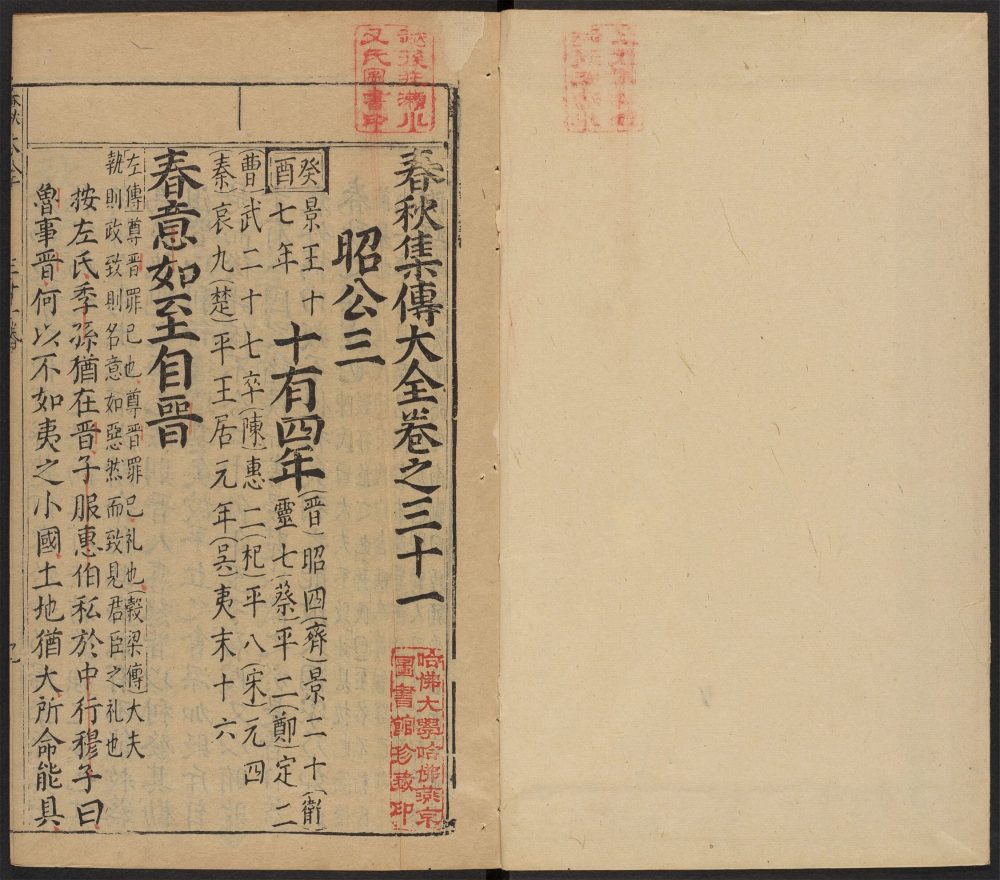 春秋集傳大全卷之三十一
昭公三
癸酉
景王十七年
十有四年
(晋)昭四(齊)景二十(衛)靈七(蔡)平二(鄭)定二
(曹)武二十七卒(陳)惠二(杞)平八(宋)元四
(秦)哀九(楚)平王居元年(吳)夷末十六
春意如至自晋
左傳尊晋罪已也尊晋罪已礼也(穀梁傳)大夫
執則政致則名意如惡然而致見君臣之礼也
按左氏季孫猶在晋子服惠伯私於中行穆子曰
魯事晋何以不如夷之小國土地猶大所命能具
哈佛大學哈佛燕京
圖書館珍藏印